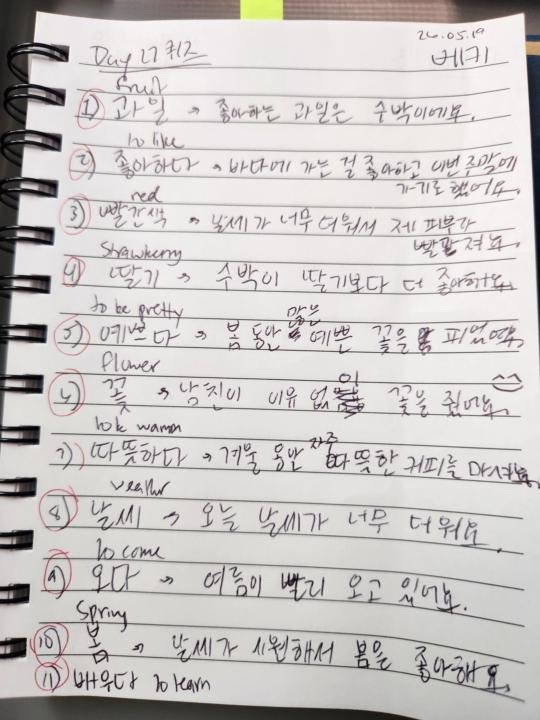 26.05.19
Day 27 퀴즈 베키
fruit
1) 과일 → 좋아하는 과일은 수박이에요.
to like
2) 좋아하다 → 바다에 가는 걸 좋아하고 이번 주말에
가기로 했어요.
red
3) 빨간색 → 날씨가 너무 더워서 제 피부가
빨개져요.
strawberry
4) 딸기 → 수박이 딸기보다 더 좋아해요.
to be pretty
많은
5) 예쁘다 → 봄 동안 예쁜 꽃을 피었어요.
flower
6) 꽃 → 남친이 이유 없이 꽃을 줬어요.
to be warm
자주
7) 따뜻하다 → 겨울 동안 따뜻한 커피를 마셔요.
weather
8) 날씨 → 오늘 날씨가 너무 더워요.
to come
9) 오다 → 여름이 빨리 오고 있어요.
spring
10) 봄 → 날씨가 시원해서 봄을 좋아해요.
11) 배우다 to learn